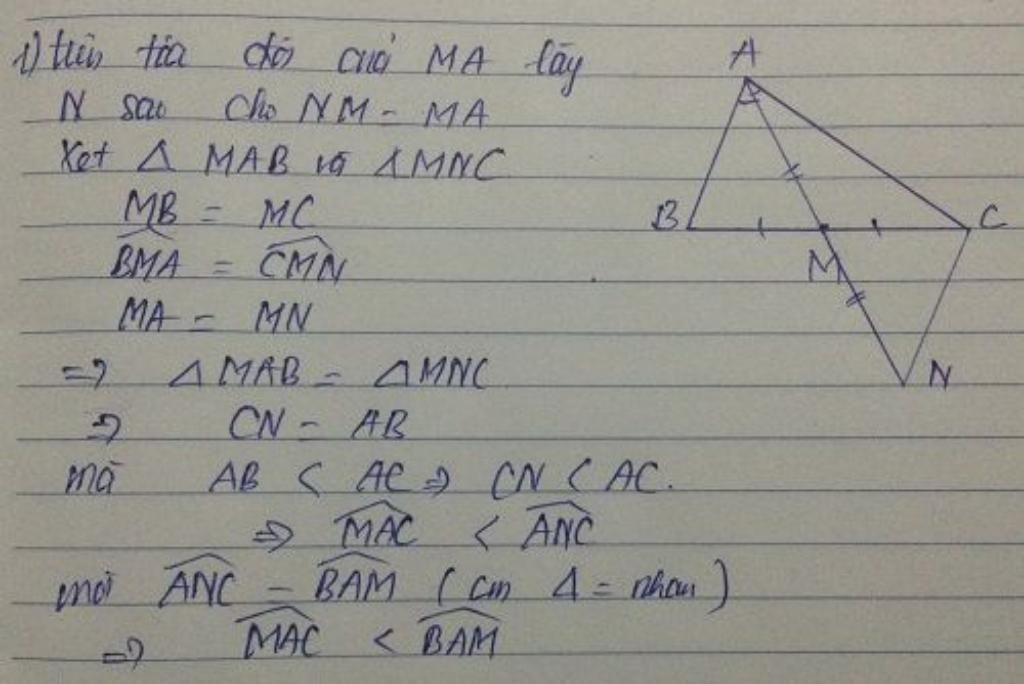 1) trên tia đối của MA lấy
N sao cho NM = MA
Xét Δ MAB và ΔMNC
MB = MC
\widehat{BMA} = \widehat{CMN}
MA = MN
=> Δ MAB = ΔMNC
=> CN = AB
mà AB < AC => CN < AC.
=> \widehat{MAC} < \widehat{ANC}
mà \widehat{ANC} = \widehat{BAM} (cm Δ = nhau)
=> \widehat{MAC} < \widehat{BAM}
A
B
C
M
N